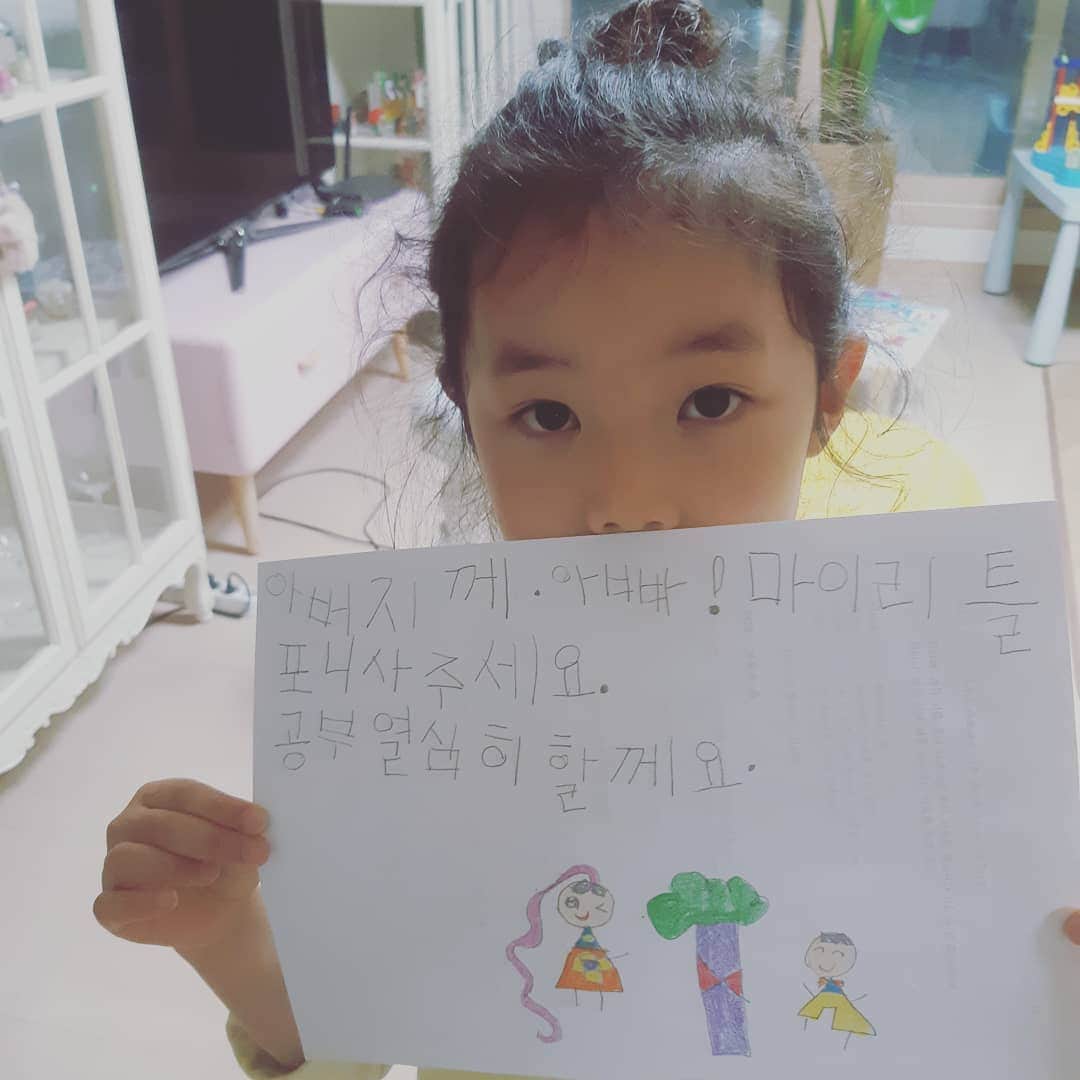 아버지께. 아빠! 마이리틀
포니사주세요.
공부열심히 할께요.